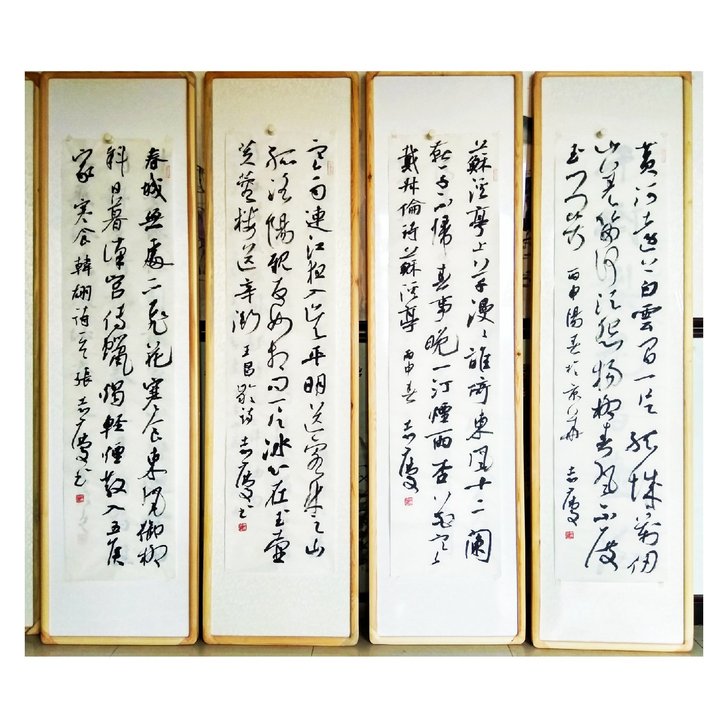 黄河遠上白雲間一片孤城萬仞
山羌笛何須怨楊柳春風不度
玉門關 丙申陽春於京華 志慶
蘇溪亭上草漫漫誰倚東風十二闌
燕子不歸春事晚一汀煙雨杏花寒
戴叔倫詩蘇溪亭 丙申春 志慶
寒雨連江夜入吳平明送客楚山
孤洛陽親友如相問一片冰心在玉壺
芙蓉樓送辛漸 王昌齡詩 志慶書
春城無處不飛花寒食東風御柳
斜日暮漢宮傳蠟燭輕煙散入五侯
家 寒食 韓翃詩一首 張志慶書